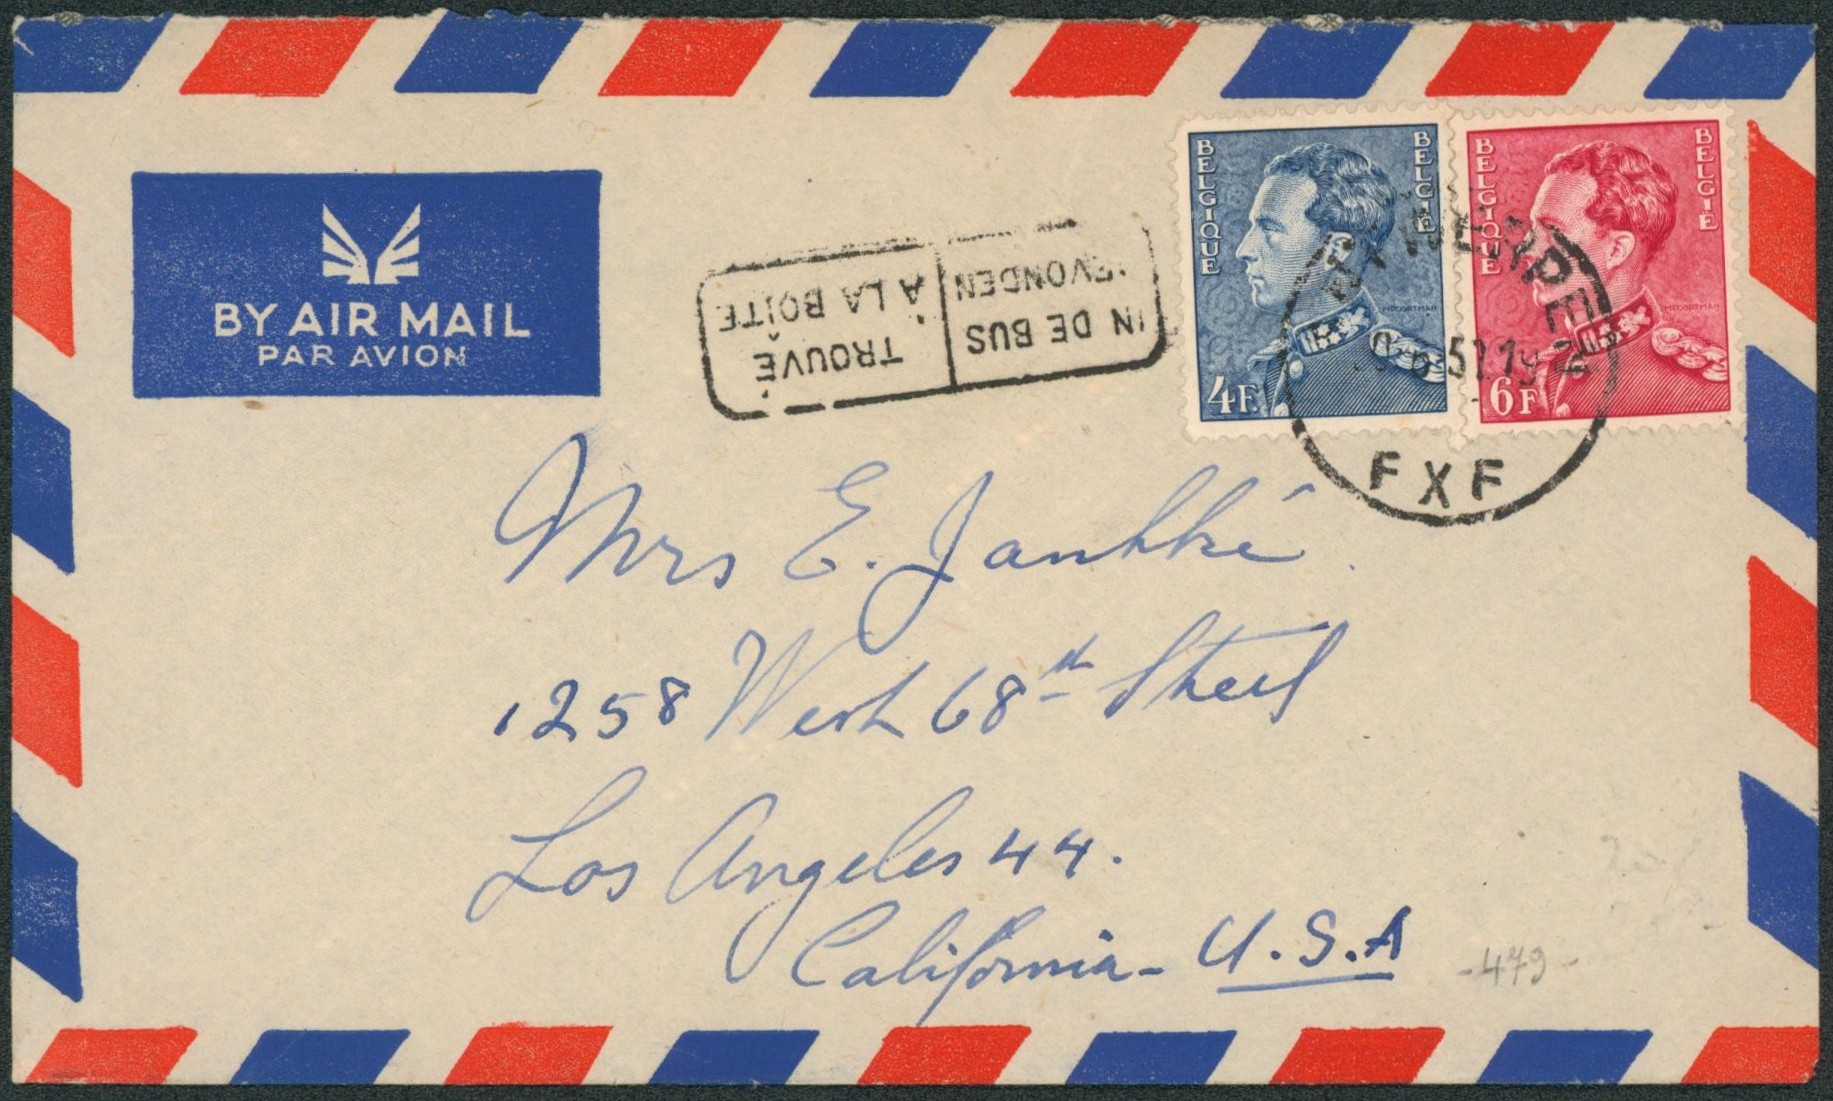 BY AIR MAIL
PAR AVION
IN DE BUS
EVONDEN
TROUVÉ
À LA BOÎTE
BELGIQUE
BELGIË
4F.
BELGIQUE
BELGIË
6F
FXF
Mrs E.
1258 West 68th Street
Los Angeles 44.
California - U.S.A
- 479 -